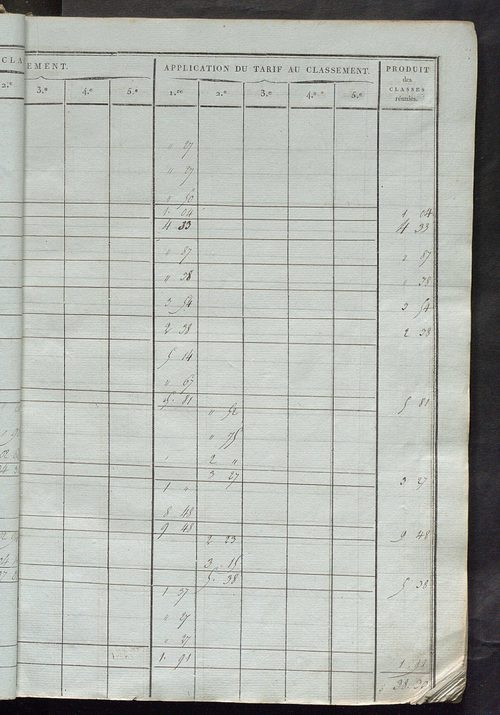 CLA
EMENT.
APPLICATION DU TARIF AU CLASSEMENT.
PRODUIT
des
CLASSES
réunies.
2.e 3.e 4.e 5.e 1.re 2.e 3.e 4.e 5.e
" 27
" 27
" 50
1. 04 1 04
4 33 4 33
" 87 " 87
" 38 " 38
3 54 3 54
2 38 2 38
5 14
" 67
5. 81 5 81
" 52
" 75
2 "
3 27 3 27
1 "
8 48
9 48 9 48
2 23
3. 15
5. 38 5 38
1 37
" 27
" 27
1. 91 1